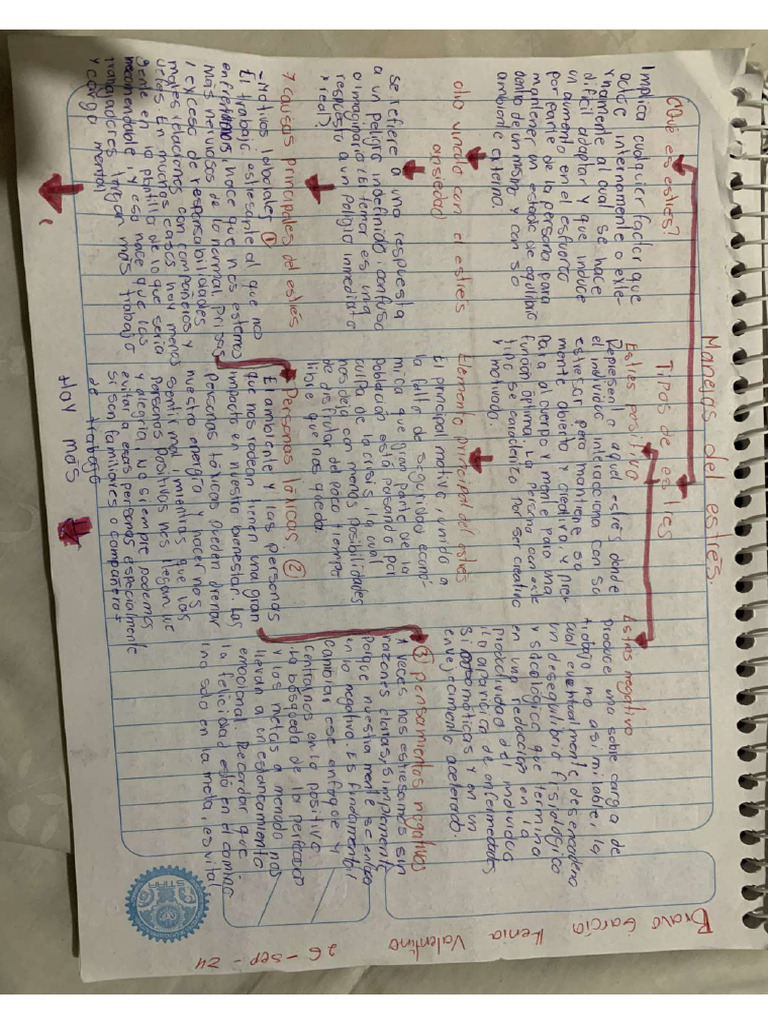 Manejos del estrés.
Bravo García Kenia Valentina
26-sep-24
¿Qué es estrés?
Implica cualquier factor que
actúe internamente o exte-
rnamente al cual se hace
difícil adaptar y que induce
un aumento en el esfuerzo
por parte de la persona para
mantener un estado de equilibrio
dentro de un mismo y con su
ambiente externa.
otro vinculo con el estrés
ansiedad
se refiere a una respuesta
a un peligro indefinido, confuso
o imaginario (el temor es una
respuesta a un peligro inmediato
y real)
7 causas principales del estrés
-Motivos laborales ①
El trabajo estresante al que nos
enfrentamos, hace que nos estemos
más nerviosos de lo normal. Prisas
, exceso de responsabilidades
males relaciones con compañeros y
jefes. En muchas casos hay menos
gente en la plantilla de lo que sería
recomendable, y eso hace que los
trabajadores tengan más trabajo
y carga mental
Tipos de estrés
Estres positivo
Representa aquel estrés donde
el individuo interacciona con su
estresor pero mantiene su
mente abierto y creativa, y pre-
para al cuerpo y mente para una
función óptima. La persona con este
tipo se caracteriza por ser creativo
y motivado.
Elemento principal del estrés
El principal motivo, unido a
la falta de seguridad econo-
mica que gran parte de la
población está pasando por
culpa de la crisis, la cual
nos deja con menos posibilidades
de disfrutar del poco tiempo
libre que nos queda
Personas tóxicas ②
El ambiente y las personas
que nos rodean tienen una gran
impacto en nuestro bienestar. Las
personas tóxicas pueden drenar
nuestra energía y hacernos
sentir mal, mientras que las
personas positivas nos llegan de
y alegría. No siempre podemos
evitar a esas personas especialmente
si son familiares o compañeros
de trabajo
Hay más
Estres negativo
Produce una sobre carga de
trabajo no asimilable, la
cual eventualmente desencadena
un desequilibrio fisiológico
y sicológico que termina
en una reducción en la
productividad del individuo
, la aparición de enfermedades
sicosomáticas y en un
envejecimiento acelerado.
③ pensamientos negativos
A veces nos estresamos sin
razones claras, simplemente
porque nuestra mente se enfoca
en lo negativo. Es fundamental
cambiar ese enfoque y
centrarnos en lo positivo
. La búsqueda de la perfección
y las metas a menudo nos
llevan a un estancamiento
emocional. Recordar que
la felicidad está en el camino
, no solo en la meta, es vital